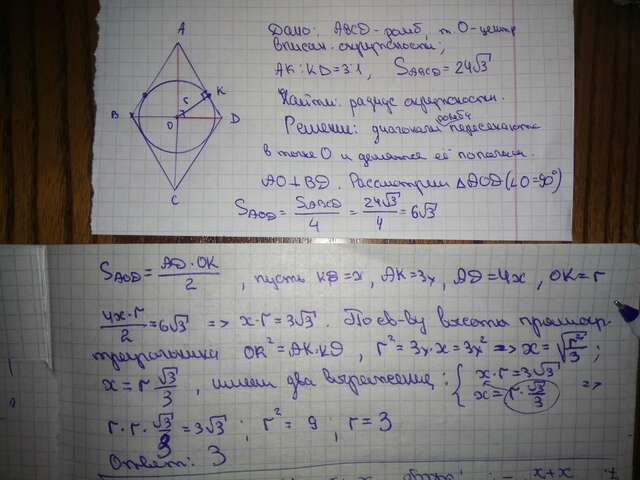 Дано: ABCD - ромб, т. O - центр
вписан. окружности;
AK:KD=3:1, S_ABCD = 24√3
Найти: радиус окружности.
Решение: диагонали ромба пересекаются
в точке O и делятся ей пополам.
AO⊥BD. Рассмотрим △AOD (∠O=90°)
S_AOD = S_ABCD/4 = 24√3/4 = 6√3
A
B
C
D
O
K
r
S_AOD = AD·OK/2, пусть KD=x, AK=3x, AD=4x, OK=r
4x·r/2 = 6√3 => x·r=3√3. По св-ву высоты прямоуг.
треугольника OK²=AK·KD, r²=3x·x=3x² => x=√(r²/3);
x = r√3/3, имеем два выражения: { x·r=3√3
x=r·√3/3 =>
r·r·√3/3 = 3√3; r²=9; r=3
Ответ: 3